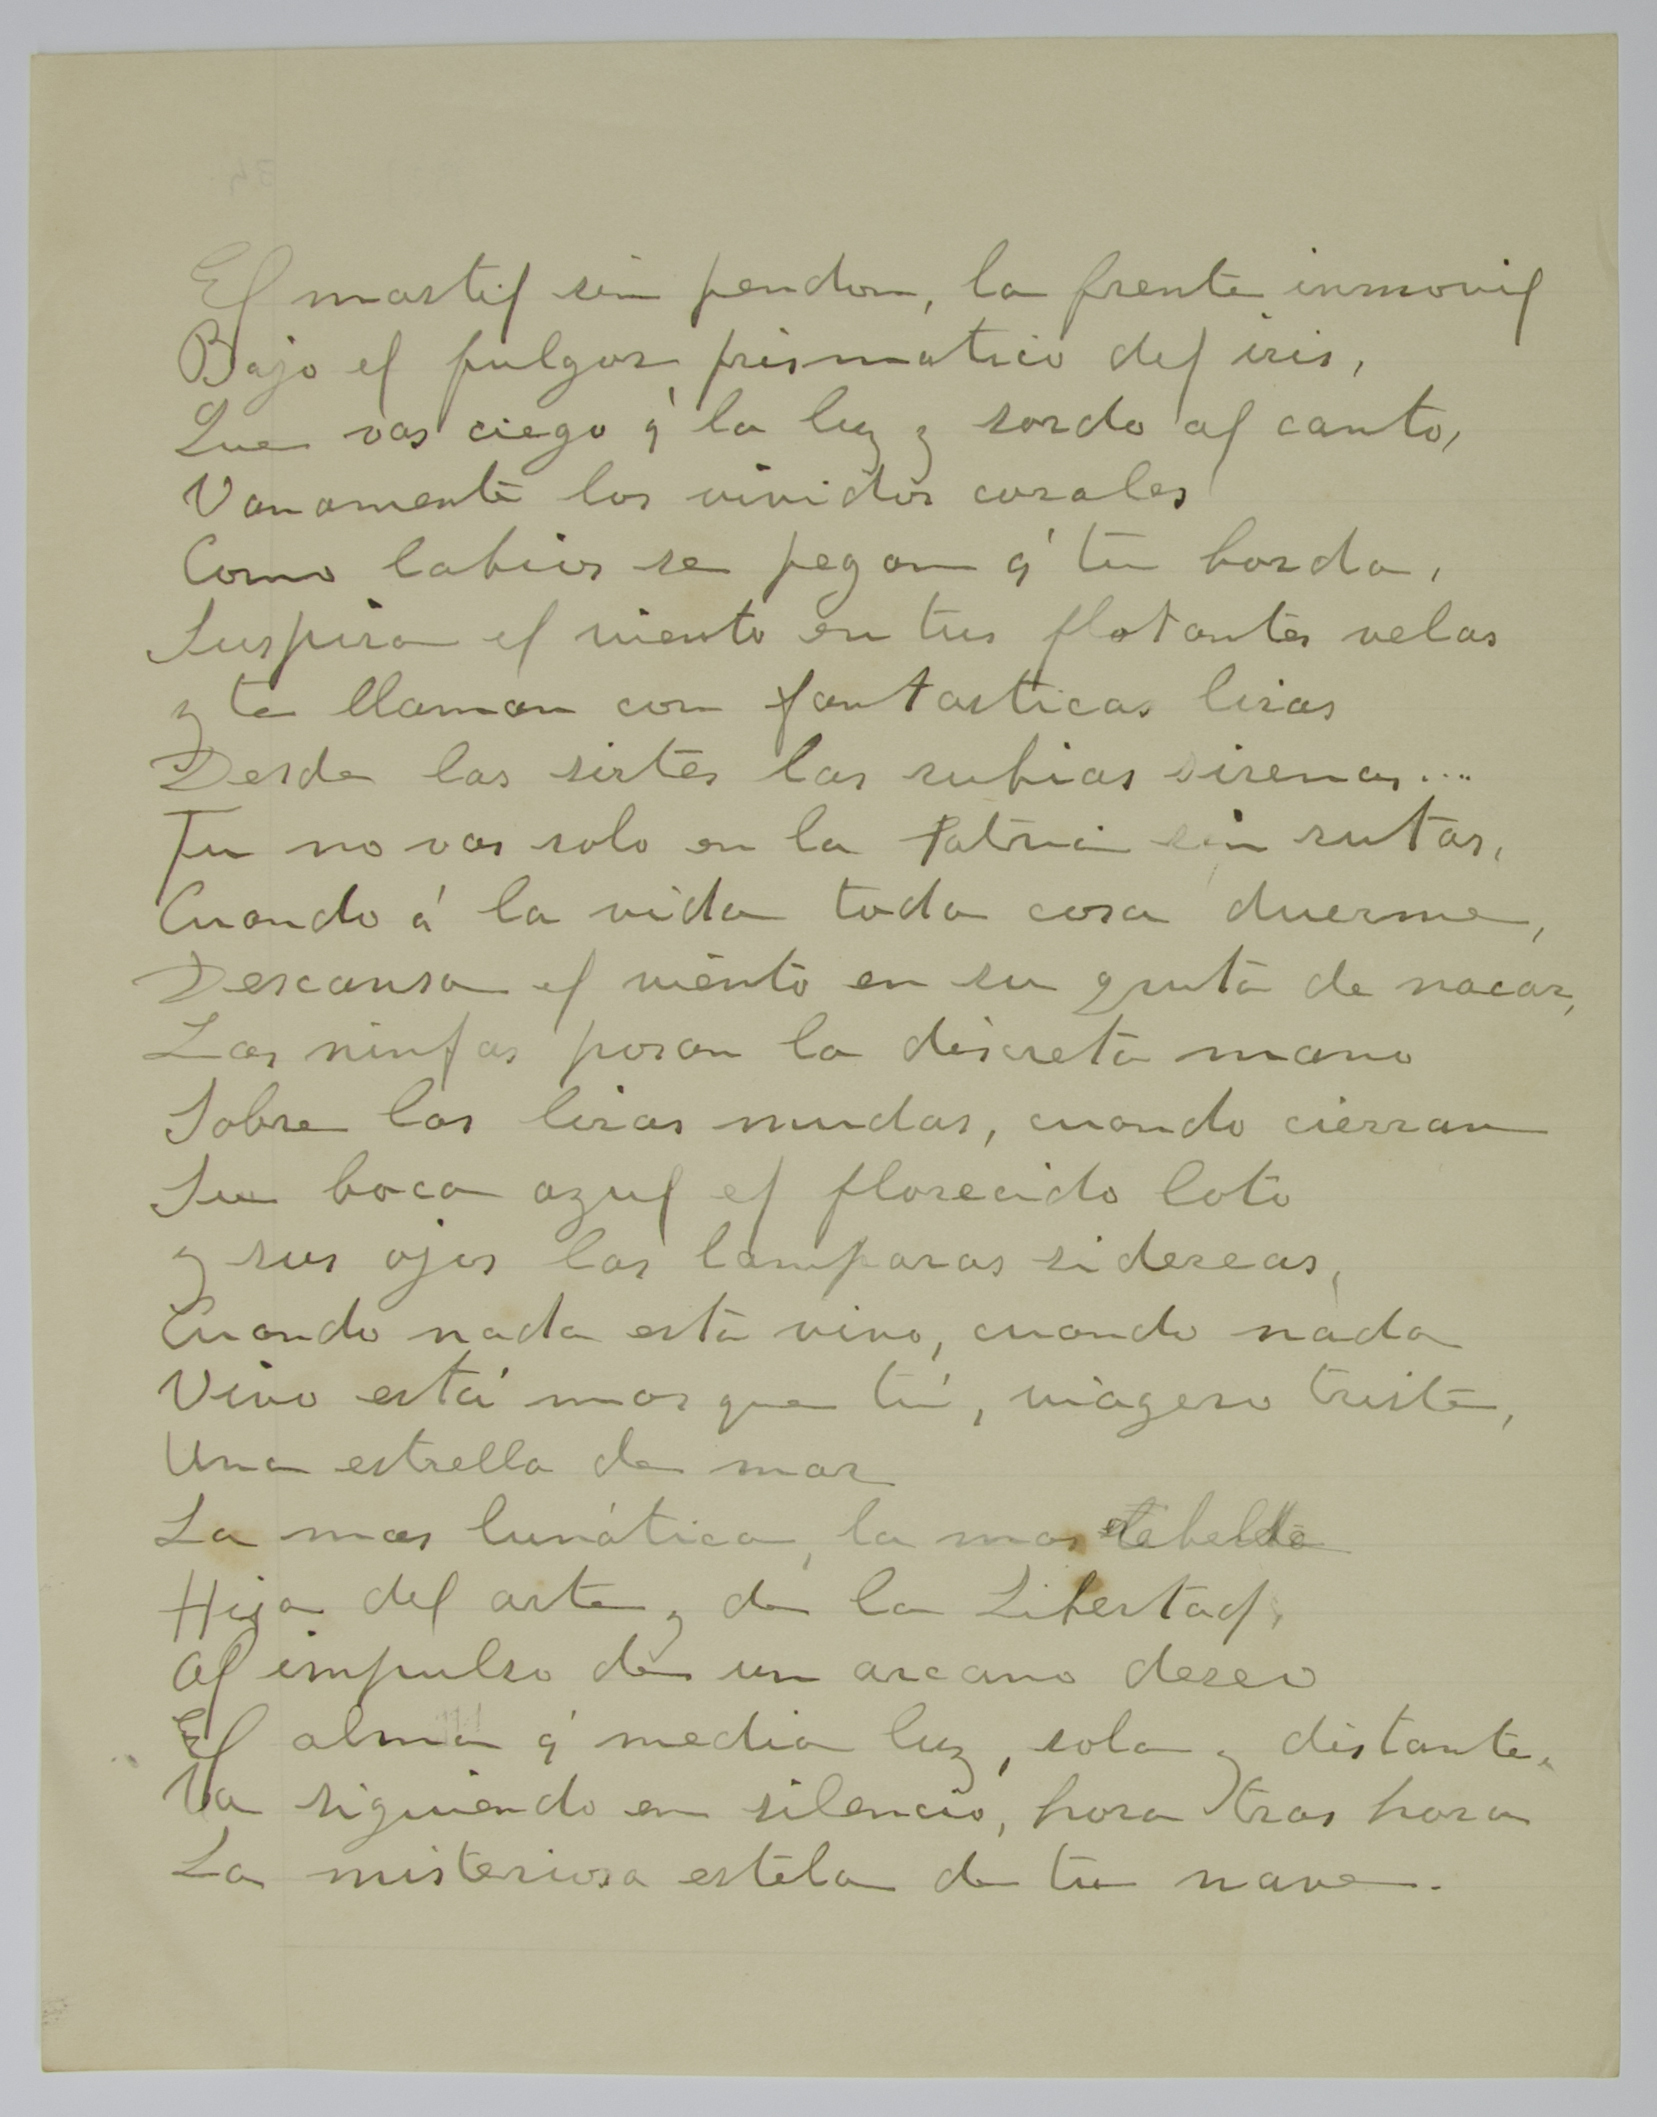 El mastil sin pendon, la frente inmovil
Bajo el fulgor prismatico del iris,
Que vas ciego á la luz y sordo al canto,
Vanamente los vividos corales
Como labios se pegan á tu borda,
Suspira el viento en tus flotantes velas
y te llaman con fantasticas liras
Desde las sirtes las rubias sirenas....
Tu no vas solo en la Patria sin rutas,
Cuando á la vida toda cosa duerme,
Descansa el viento en su gruta de nacar,
Las ninfas posan la discreta mano
Sobre las liras mudas, cuando cierran
Su boca azul el florecido loto
y sus ojos las lamparas sidereas,
Cuando nada está vivo, cuando nada
Vivo está mas que tú, viagero triste,
Una estrella de mar
La mas lunática, la mas rebelde
Hija del arte y de la Libertad,
Al impulso de un arcano deseo
El alma á media luz, sola y distante,
Va siguiendo en silencio, hora tras hora
La misteriosa estela de tu nave.